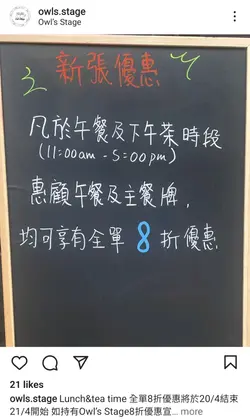 owls.stage
Owl's Stage
新張優惠
凡於午餐及下午茶時段
(11:00am - 5:00pm)
惠顧午餐及主餐牌,
均可享有全單8折優惠
21 likes
owls.stage Lunch&tea time 全單8折優惠將於20/4結束
21/4開始 如持有Owl's Stage8折優惠宣... more